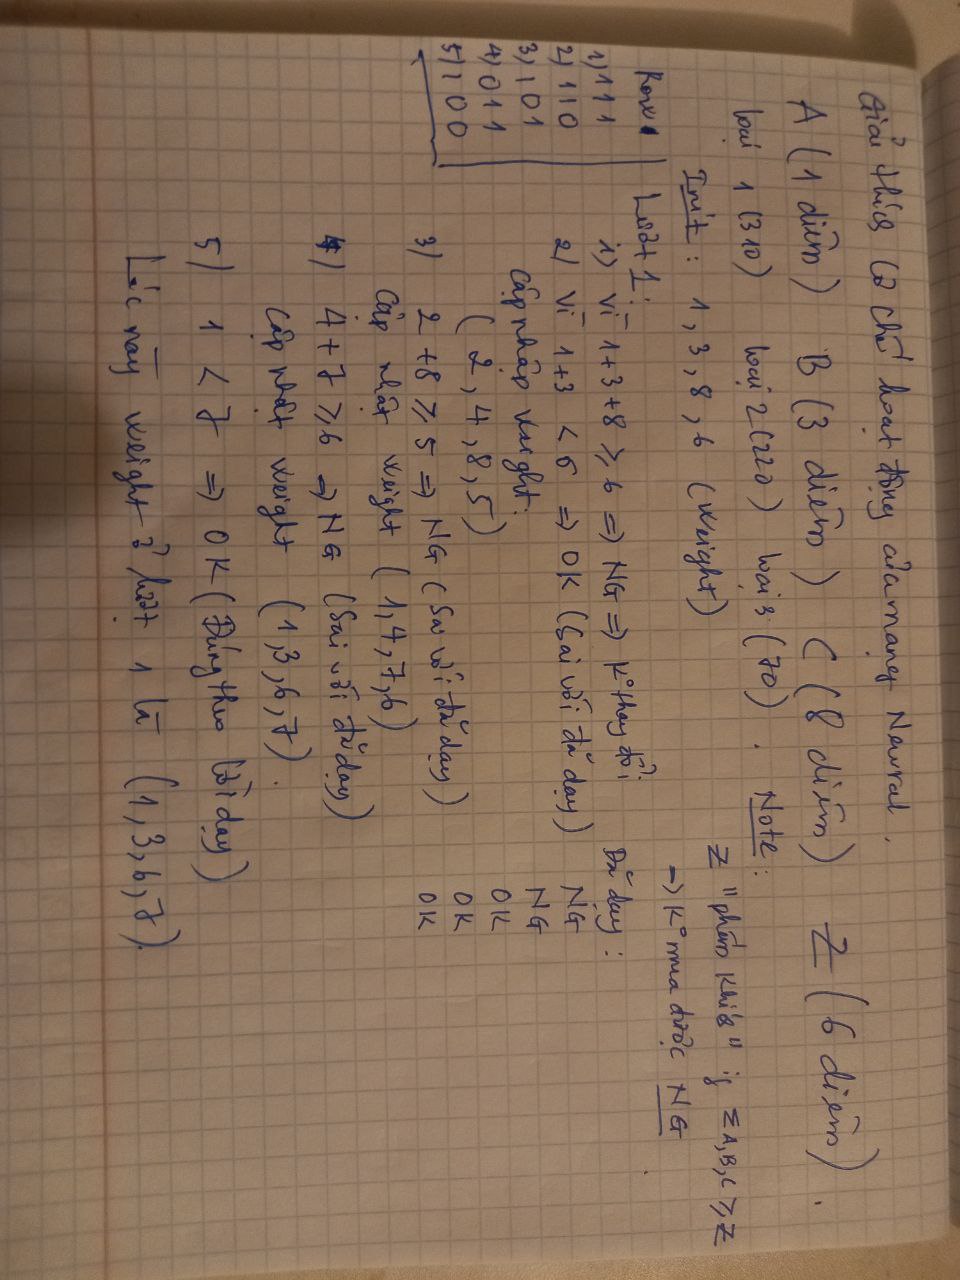 Giải thích cơ chế hoạt động của mạng Neural.
A (1 điểm) B (3 điểm) C (8 điểm) Z (6 điểm).
loại 1 (310) loại 2 (220) loại 3 (70). Note:
Z "phấn khích" if ΣA,B,C ≥ Z
→ K° mua được NG
Init: 1, 3, 8, 6 (Weight)
Row
1) 111
2) 110
3) 101
4) 011
5) 100
Lượt 1:
1) Vì 1+3+8 ≥ 6 => NG => K° thay đổi
2) Vì 1+3 < 6 => OK (Sai với đã dạy)
Cập nhập weight:
(2, 4, 8, 5)
3) 2+8 ≥ 5 => NG (Sai với đã dạy)
Cập nhật weight (1, 4, 7, 6)
4) 4+7 ≥ 6 → NG (Sai với đã dạy)
Cập nhật weight (1, 3, 6, 7).
5) 1 < 7 => OK (Đúng theo lời dạy)
Lúc này weight ở lượt 1 là (1, 3, 6, 7).
Đã dạy:
NG
NG
OK
OK
OK